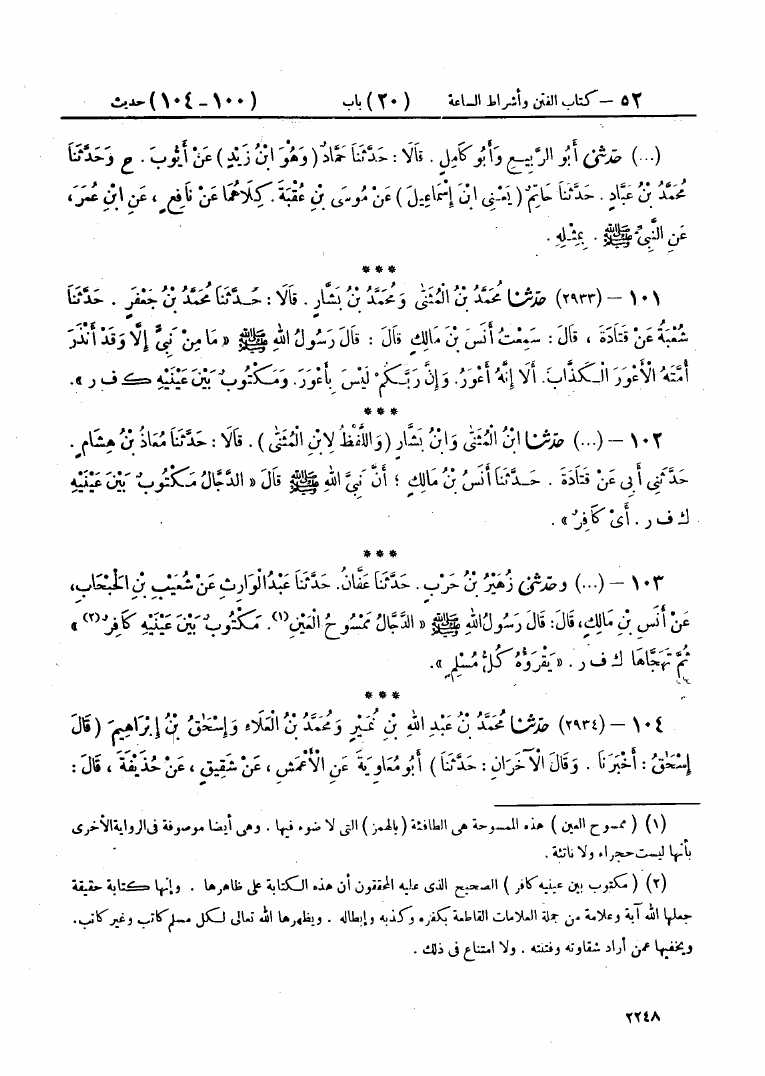 ٥٢ – كتاب الفتن وأشراط الساعة (٢٠) باب (١٠٠–١٠٤) حديث
(...) حَدَّثَنِي أَبُو الرَّبِيعِ وَأَبُو كَامِلٍ . قَالَا : حَدَّثَنَا حَمَّادٌ (وَهُوَ ابْنُ زَيْدٍ) عَنْ أَيُّوبَ . ح وَحَدَّثَنَا
مُحَمَّدُ بْنُ عَبَّادٍ . حَدَّثَنَا حَاتِمٌ (يَعْنِي ابْنَ إِسْمَاعِيلَ) عَنْ مُوسَى بْنِ عُقْبَةَ . كِلَاهُمَا عَنْ نَافِعٍ ، عَنِ ابْنِ عُمَرَ ،
عَنِ النَّبِيِّ ﷺ . بِمِثْلِهِ .
***
١٠١ – (٢٩٣٣) حَدَّثَنَا مُحَمَّدُ بْنُ الْمُثَنَّى وَمُحَمَّدُ بْنُ بَشَّارٍ . قَالَا : حَدَّثَنَا مُحَمَّدُ بْنُ جَعْفَرٍ . حَدَّثَنَا
شُعْبَةُ عَنْ قَتَادَةَ ، قَالَ : سَمِعْتُ أَنَسَ بْنَ مَالِكٍ قَالَ : قَالَ رَسُولُ اللهِ ﷺ « مَا مِنْ نَبِيٍّ إِلَّا وَقَدْ أَنْذَرَ
أُمَّتَهُ الْأَعْوَرَ الْكَذَّابَ. أَلَا إِنَّهُ أَعْوَرُ. وَإِنَّ رَبَّكُمْ لَيْسَ بِأَعْوَرَ. وَمَكْتُوبٌ بَيْنَ عَيْنَيْهِ ك ف ر ».
***
١٠٢ – (...) حَدَّثَنَا ابْنُ الْمُثَنَّى وَابْنُ بَشَّارٍ (وَاللَّفْظُ لِابْنِ الْمُثَنَّى) . قَالَا : حَدَّثَنَا مُعَاذُ بْنُ هِشَامٍ .
حَدَّثَنِي أَبِي عَنْ قَتَادَةَ . حَدَّثَنَا أَنَسُ بْنُ مَالِكٍ ؛ أَنَّ نَبِيَّ اللهِ ﷺ قَالَ « الدَّجَّالُ مَكْتُوبٌ بَيْنَ عَيْنَيْهِ
ك ف ر . أَيْ كَافِرٌ » .
***
١٠٣ – (...) وحَدَّثَنِي زُهَيْرُ بْنُ حَرْبٍ. حَدَّثَنَا عَفَّانُ. حَدَّثَنَا عَبْدُ الْوَارِثِ عَنْ شُعَيْبِ بْنِ الْحَبْحَابِ،
عَنْ أَنَسِ بْنِ مَالِكٍ، قَالَ: قَالَ رَسُولُ اللهِ ﷺ « الدَّجَّالُ مَمْسُوحُ الْعَيْنِ(١). مَكْتُوبٌ بَيْنَ عَيْنَيْهِ كَافِرٌ(٢) »
ثُمَّ تَهَجَّاهَا ك ف ر . « يَقْرَؤُهُ كُلُّ مُسْلِمٍ ».
***
١٠٤ – (٢٩٣٤) حَدَّثَنَا مُحَمَّدُ بْنُ عَبْدِ اللهِ بْنِ نُمَيْرٍ وَمُحَمَّدُ بْنُ الْعَلَاءِ وَإِسْحَاقُ بْنُ إِبْرَاهِيمَ (قَالَ
إِسْحَاقُ : أَخْبَرَنَا . وَقَالَ الْآخَرَانِ : حَدَّثَنَا) أَبُو مُعَاوِيَةَ عَنِ الْأَعْمَشِ ، عَنْ شَقِيقٍ ، عَنْ حُذَيْفَةَ ، قَالَ :
(١) (ممسوح العين) هذه الممسوحة هى الطافئة (بالهمز) التى لا ضوء فيها . وهى أيضا موصوفة فى الرواية الأخرى
بأنها ليست حجراء ولا ناتئة .
(٢) (مكتوب بين عينيه كافر) الصحيح الذى عليه المحققون أن هذه الكتابة على ظاهرها . وإنها كتابة حقيقة
جعلها الله آية وعلامة من جملة العلامات القاطعة بكفره وكذبه وإبطاله . ويظهرها الله تعالى لكل مسلم كاتب وغير كاتب.
ويخفيها عمن أراد شقاوته وفتنته . ولا امتناع فى ذلك .
٢٢٤٨